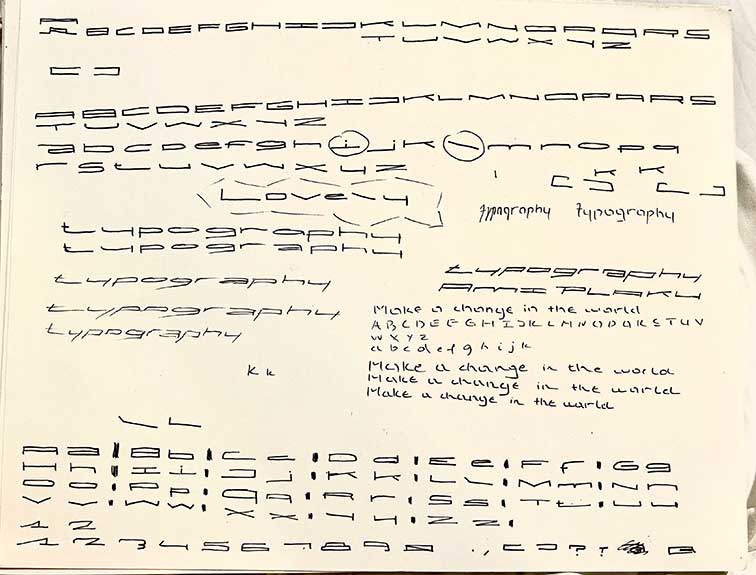 A B C D E F G H I J K L M N O P Q R S
T U V W X Y Z
A B C D E F G H I J K L M N O P Q R S
T U V W X Y Z
a b c d e f g h i j k l m n o p q
r s t u v w x y z
K K
Lovely
typography typography
typography
typography
typography
typography
typography
typography
AMI PLAKU
Make a change in the world
A B C D E F G H I J K L M N O P Q R S T U V
W X Y Z
a b c d e f g h i j k
Make a change in the world
Make a change in the world
Make a change in the world
K k
A a B b C c D d E e F f G g
H h I i J j K k L l M m N n
O o P p Q q R r S s T t U u
V v W w X x Y y Z z
1 2
1 2 3 4 5 6 7 8 9 0 . , ? !